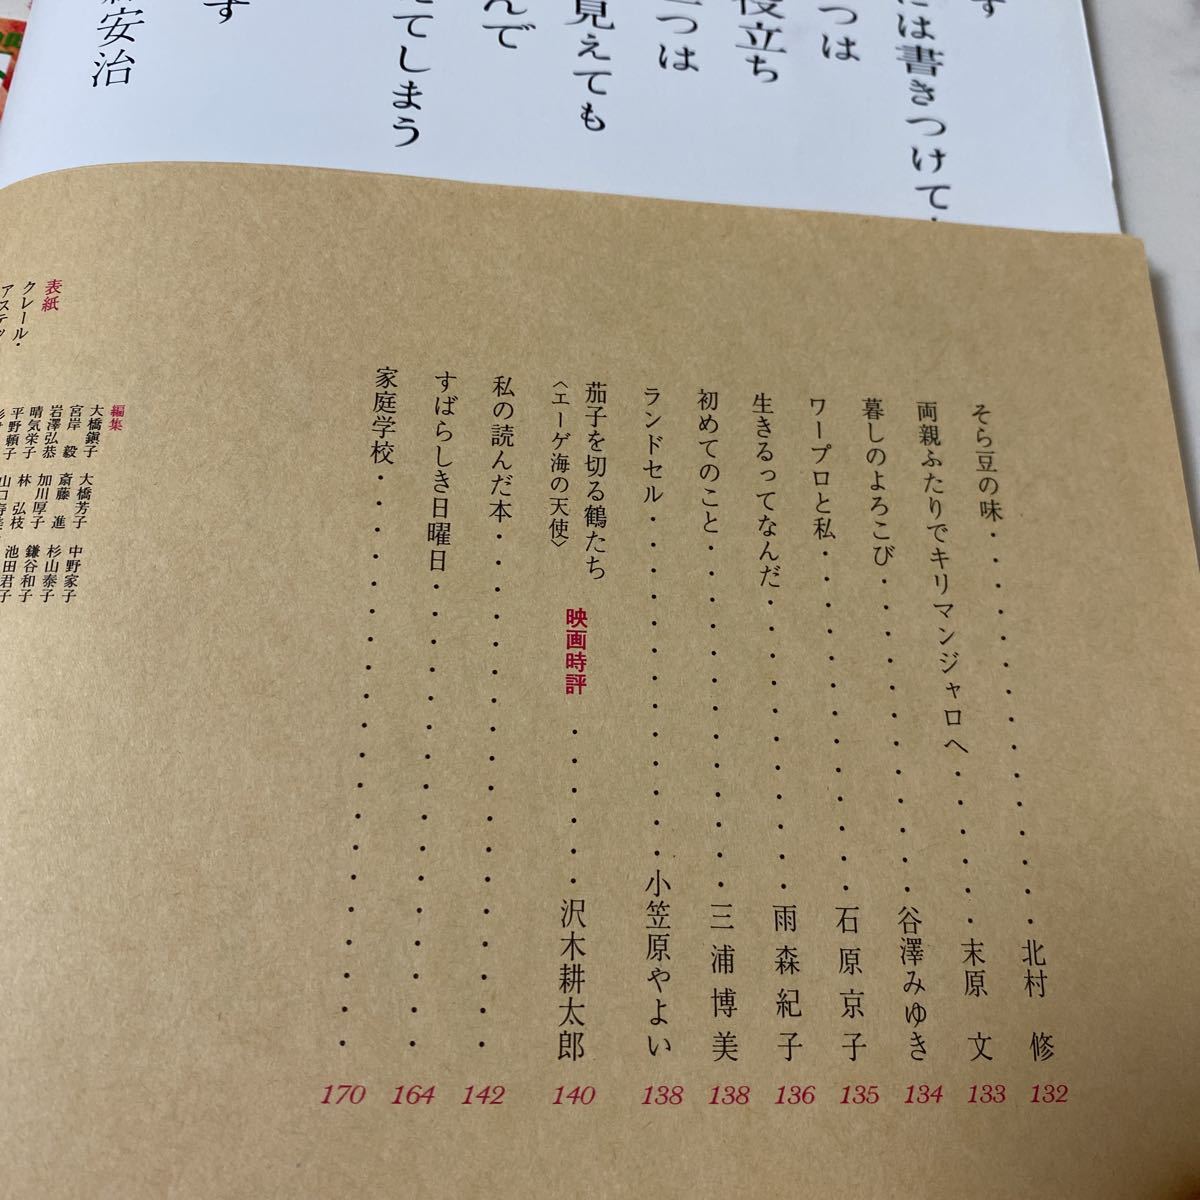 す
には書きつけて
つは
役立ち
つは
見えても
んで
えてしまう
す
安治
そら豆の味・・・・・・・・・・・・・・北村 修 132
両親ふたりでキリマンジャロへ・・・・・・末原 文 133
暮しのよろこび・・・・・・・・・・・・谷澤みゆき 134
ワープロと私・・・・・・・・・・・・・石原京子 135
生きるってなんだ・・・・・・・・・・・雨森紀子 136
初めてのこと・・・・・・・・・・・・・三浦博美 138
ランドセル・・・・・・・・・・・・・小笠原やよい 138
茄子を切る鶴たち
〈エーゲ海の天使〉 映画時評 ・・・・・・沢木耕太郎 140
私の読んだ本・・・・・・・・・・・・・・・・・・・ 142
すばらしき日曜日・・・・・・・・・・・・・・・・・ 164
家庭学校・・・・・・・・・・・・・・・・・・・・・ 170
編集
大橋鎭子 大橋芳子 中野家子
宮岸 毅 斎藤 進 杉山泰子
岩澤弘恭 加川厚子 鎌谷和子
晴気栄子 林 弘枝 池田君子
平野頼子 山口寿美
表紙
クレール・
アステッ